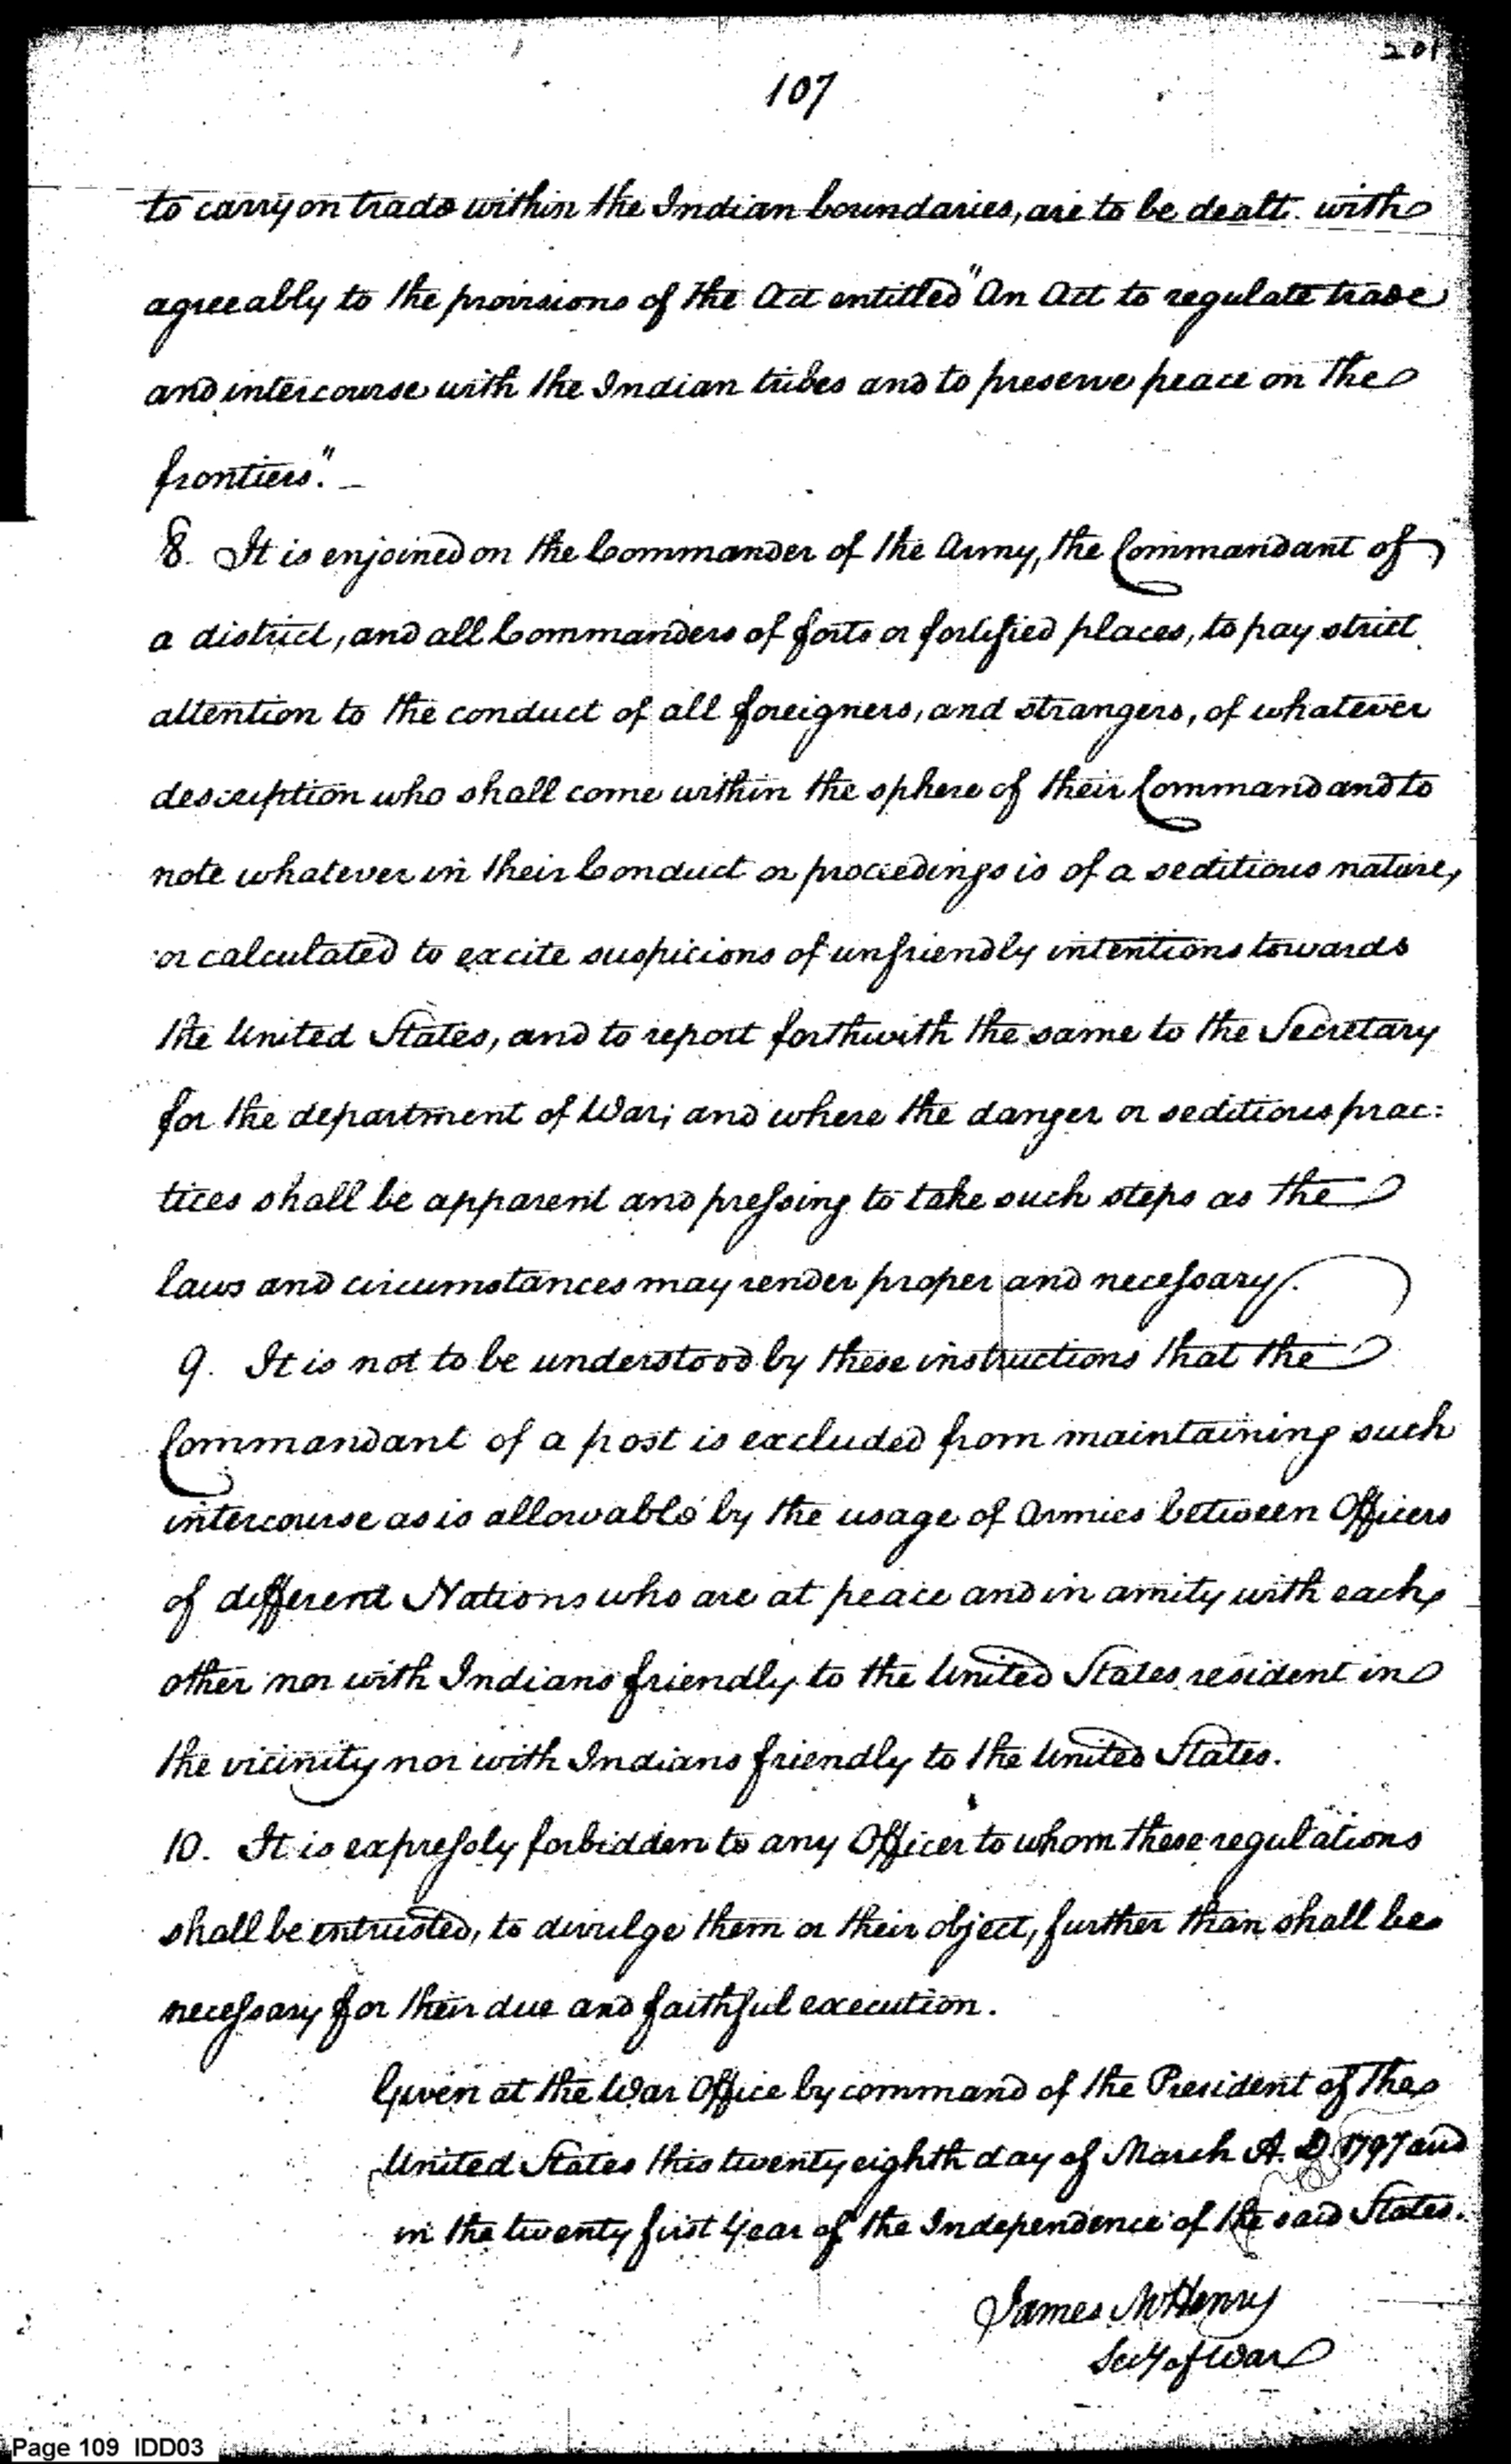 201
107
to carry on trade within the Indian boundaries, are to be dealt with
agreeably to the provisions of the Act entitled "An Act to regulate trade
and intercourse with the Indian tribes and to preserve peace on the
frontiers". —
8. It is enjoined on the Commander of the Army, the Commandant of
a district, and all Commanders of forts or fortified places, to pay strict
attention to the conduct of all foreigners, and strangers, of whatever
description who shall come within the sphere of their Command and to
note whatever in their Conduct or proceedings is of a seditious nature,
or calculated to excite suspicions of unfriendly intentions towards
the United States, and to report forthwith the same to the Secretary
for the department of War; and where the danger or seditious prac:
tices shall be apparent and pressing to take such steps as the
laws and circumstances may render proper and necessary.
9. It is not to be understood by these instructions that the
Commandant of a post is excluded from maintaining such
intercourse as is allowable by the usage of Armies between Officers
of different Nations who are at peace and in amity with each
other nor with Indians friendly to the United States resident in
the vicinity nor with Indians friendly to the United States.
10. It is expressly forbidden to any Officer to whom these regulations
shall be entrusted, to divulge them or their object, further than shall be
necessary for their due and faithful execution.
Given at the War Office by command of the President of the
United States this twenty eighth day of March A. D. 1797 and
in the twenty first Year of the Independence of the said States.
James McHenry
Secy of War
Page 109 IDD03